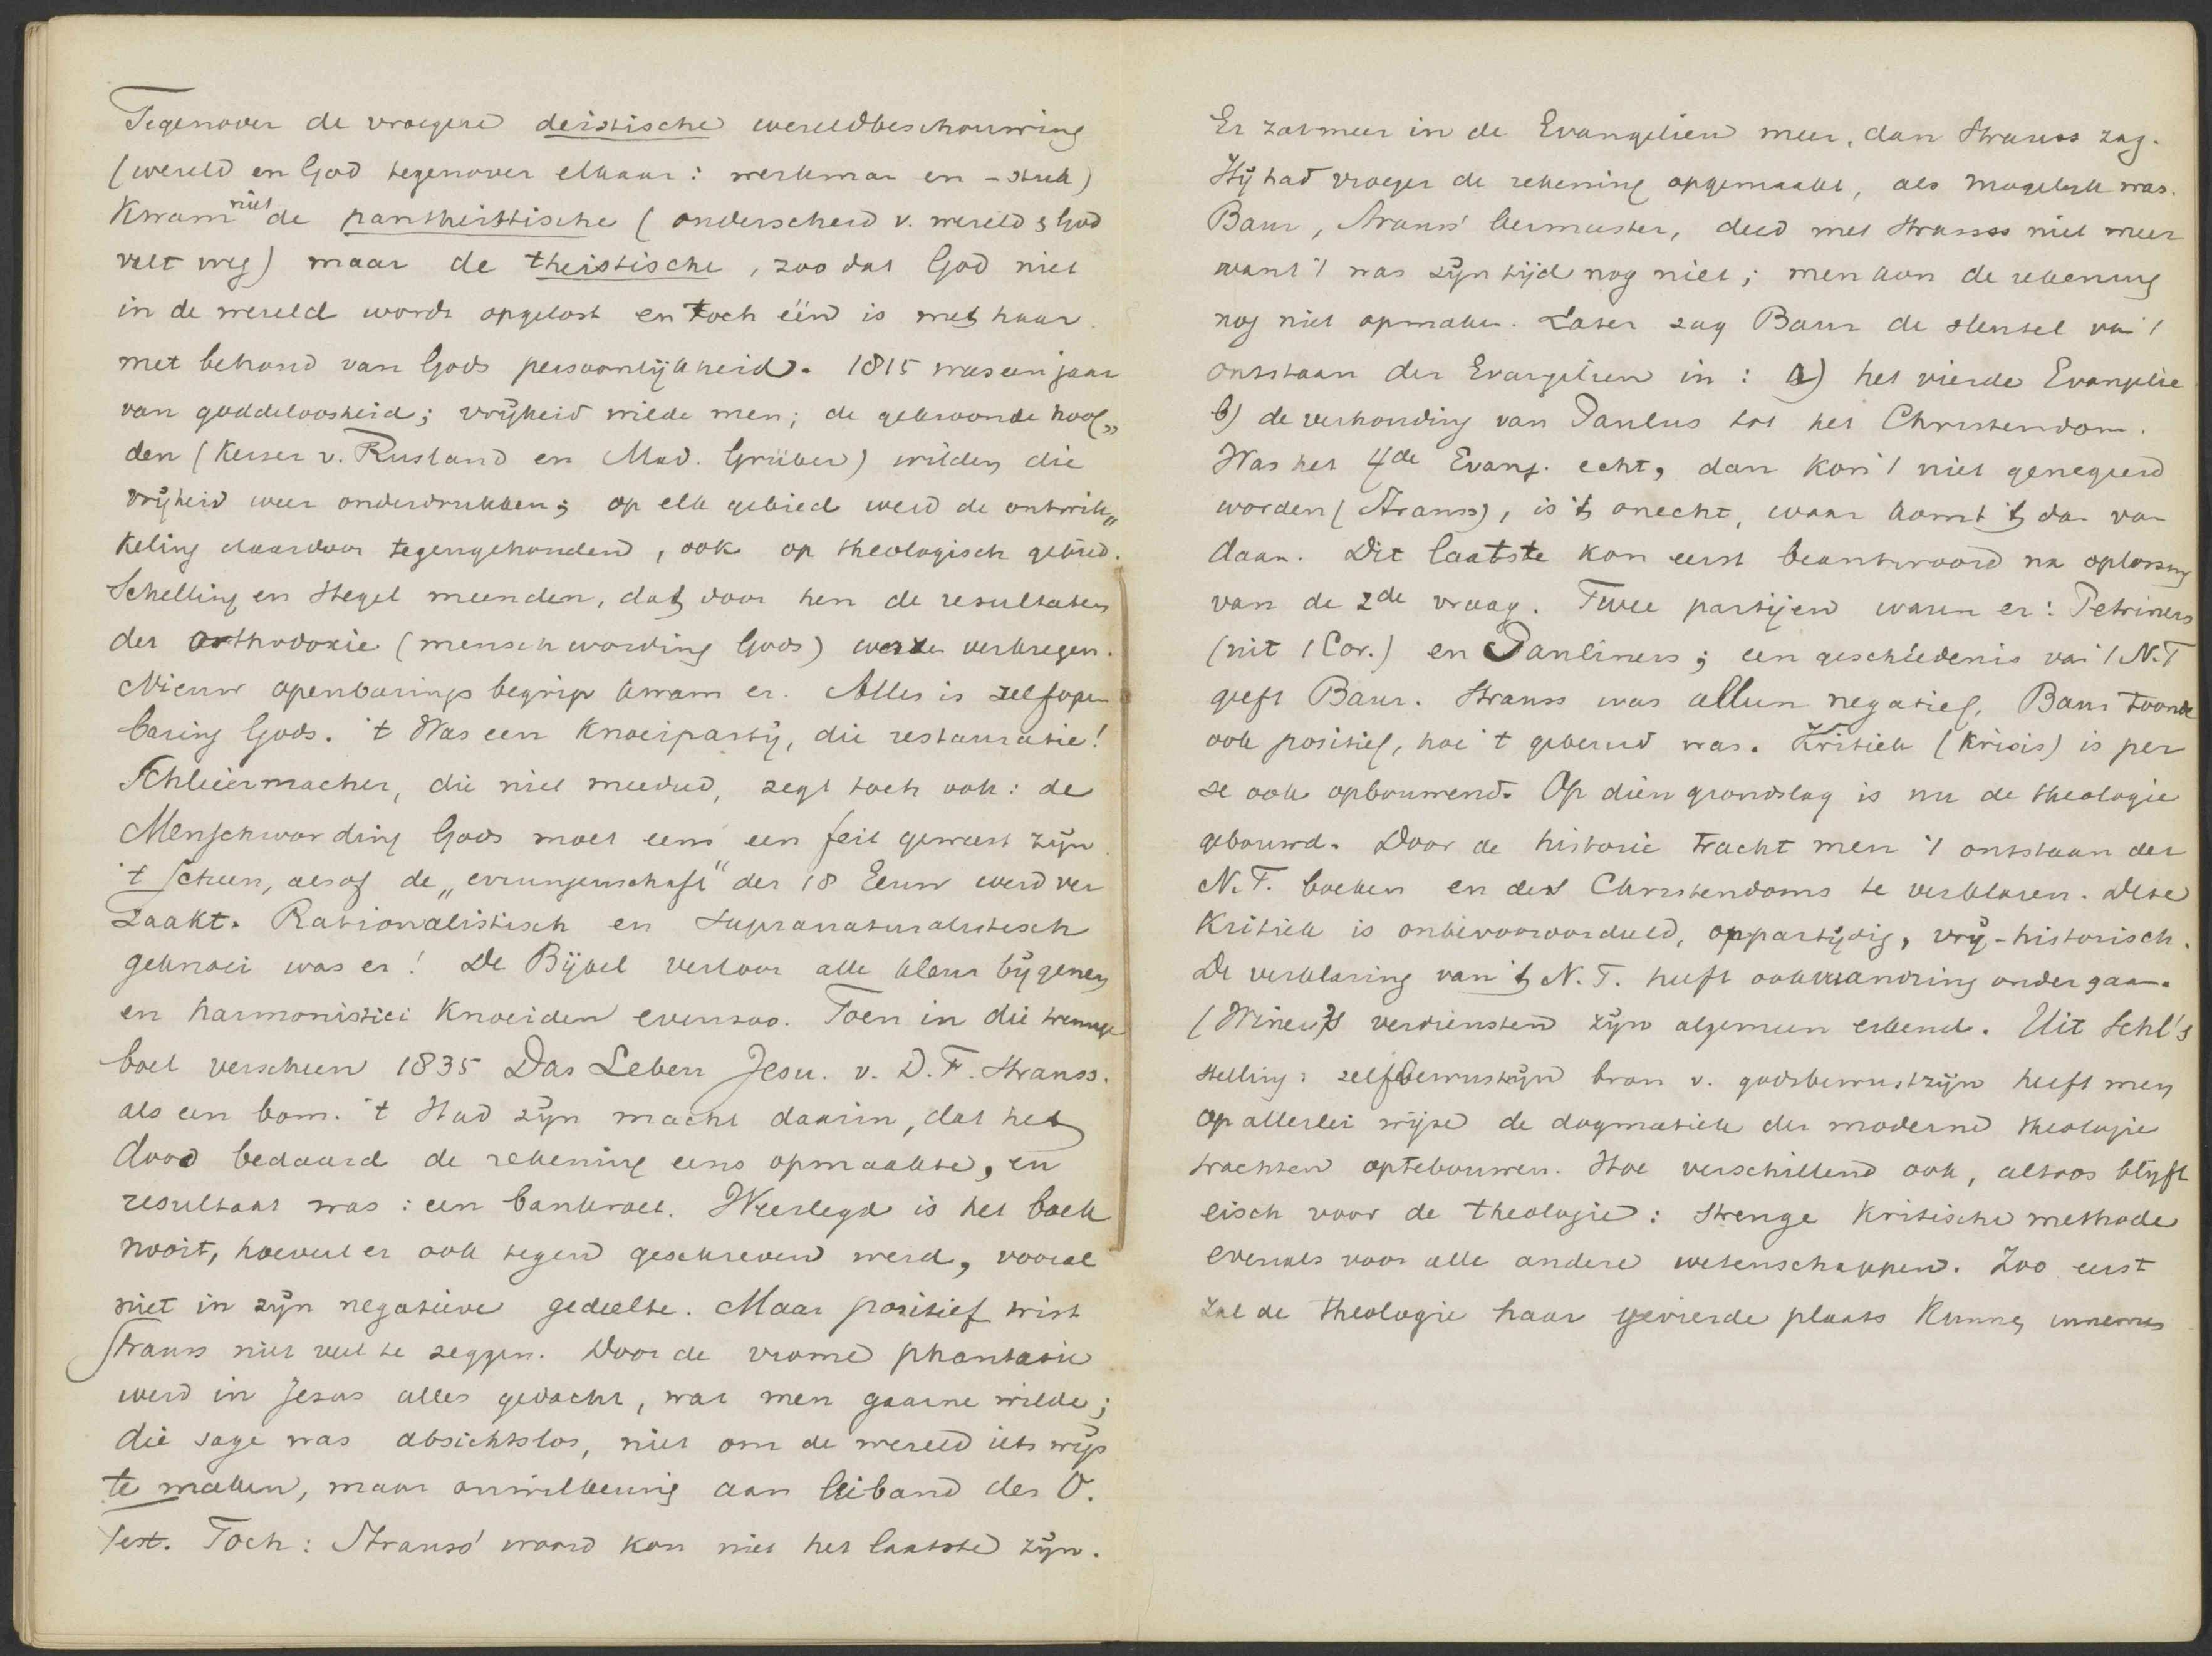 Tegenover de vroegere deistische wereldbeschouwing
(wereld en God tegenover elkaar: werkman en -stuk)
Kwam niet de pantheistische (onderscheid v. wereld & God
valt weg) maar de theistische, zoo dat God niet
in de wereld wordt opgelost en toch één is met haar.
met behoud van Gods persoonlijkheid. 1815 was een jaar
van goddeloosheid; vrijheid wilde men; de gekroonde hoof„
den (Keiser v. Rusland en Mad. Grüber) wilden die
vrijheid weer onderdrukken; op elk gebied werd de ontwik„
keling daardoor tegengehouden, ook op theologisch gebied.
Schelling en Hegel meenden, dat door hen de resultaten
der orthodoxie (menschwording Gods) werden verkregen.
Nieuw openbaringsbegrip kwam er. Alles is zelfopen
baring Gods. 't Was een Knoeiparty, die restauratie!
Schleiermacher, die niet meedeed, zegt toch ook: de
Menschwording Gods moet eens een feit geweest zijn.
't Scheen, alsof de „errungenschaft" der 18 Eeuw werd ver
zaakt. Rationalistisch en supranaturalistisch
geknoei was er! De Bijbel verloor alle kleur bij genen
en harmonistici Knoeiden evenzoo. Toen in die
boel verscheen 1835 Das Leben Jesu. v. D. F. Strauss.
als een bom. 't Had zijn macht daarin, dat het
dood bedaard de rekening eens opmaakte, en
resultaat was: een bankroet. Weerlegd is het boek
nooit, hoeveel er ook tegen geschreven werd, vooral
niet in zijn negatieve gedeelte. Maar positief wist
Strauss niet veel te zeggen. Door de vrome phantasie
werd in Jezus alles gedacht, wat men gaarne wilde;
die sage was absichtslos, niet om de wereld iets wijs
te maken, maar onwillekeurig aan leiband der O.
Test. Toch: Strauss' woord kon niet het laatste zijn.
Er zat meer in de Evangelien meer, dan Strauss zag.
Hij had vroeger de rekening opgemaakt, als mogelijk was.
Baur, Strauss' leermeester, deed met Strauss niet meer
want 't was zijn tijd nog niet; men kon de rekening
nog niet opmaken. Later zag Baur de sleutel van 't
ontstaan der Evangelien in: a) het vierde Evangelie
b) de verhouding van Paulus tot het Christendom.
Was het 4de Evang. echt, dan kon 't niet genegeerd
worden (Strauss), is 't onecht, waar komt 't dan van
daan. Dit laatste kon eerst beantwoord na oplossing
van de 2de vraag. Twee partijen waren er: Petriners
(uit 1 Cor.) en Pauliners; een geschiedenis van 't N.T
geeft Baur. Strauss was alleen negatief, Baur toonde
ook positief, hoe 't gebeurd was. Kritiek (Krisis) is per
se ook opbouwend. Op dien grondslag is nu de theologie
gebouwd. Door de historie tracht men 't ontstaan der
N.T. boeken en des Christendoms te verklaren. Deze
Kritiek is onbevooroordeeld, onpartijdig, vrij-historisch.
De verklaring van 't N.T. heeft ook verandring ondergaan.
(Winer's verdiensten zijn algemeen erkend. Uit Schl's
stelling: zelfbewustzijn bron v. godsbewustzijn heeft men
op allerlei wijze de dogmatiek der moderne theologie
trachten optebouwen. Hoe verschillend ook, altoos blijft
eisch voor de theologie: strenge Kritische methode
evenals voor alle andere wetenschappen. Zoo eerst
zal de theologie haar gevierde plaats Kunnen innemen